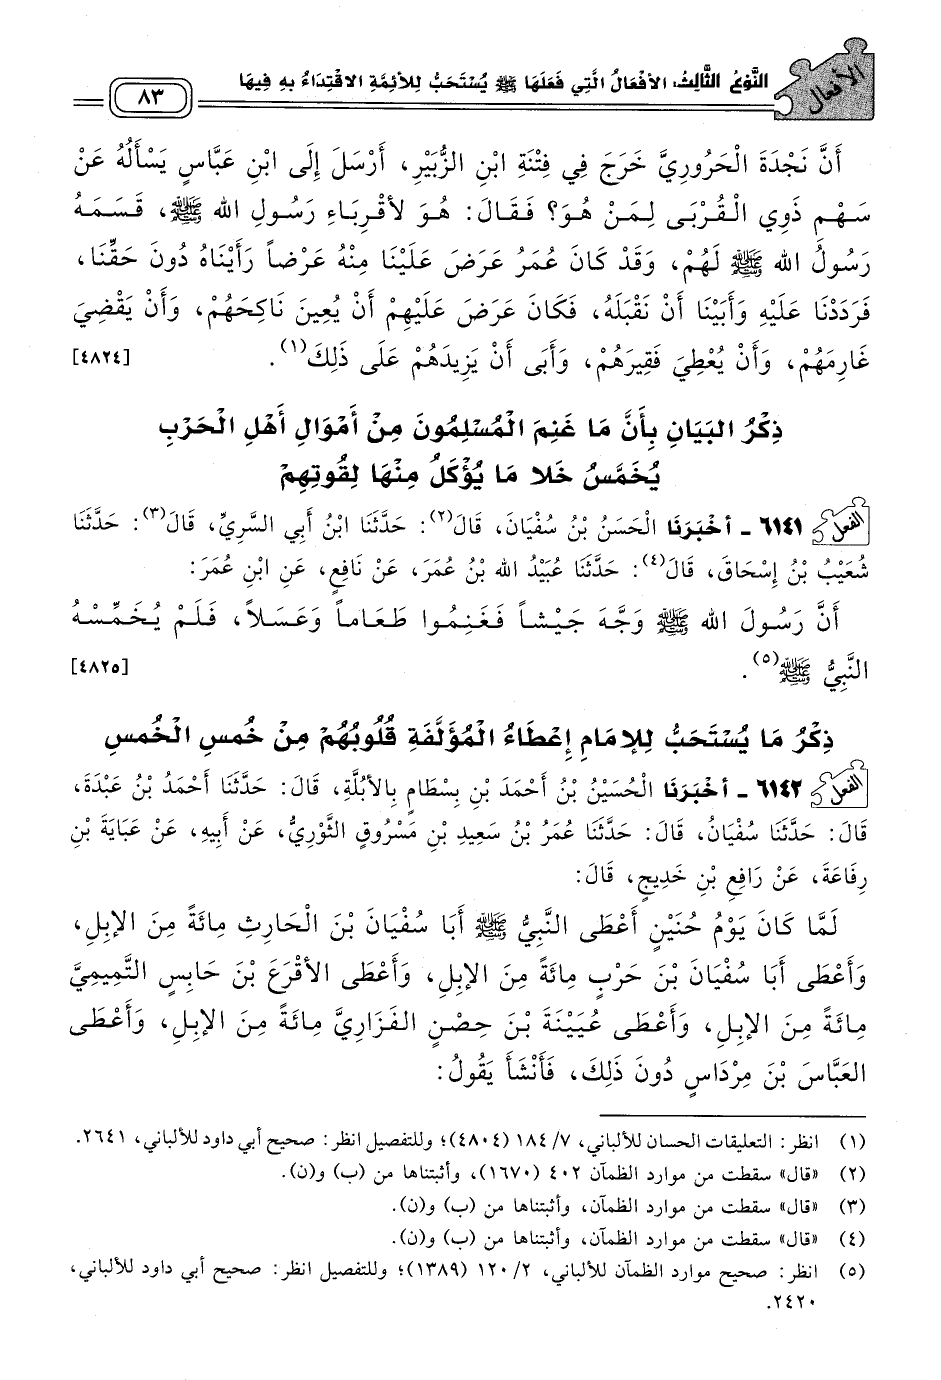 الأفعال
النَّوْعُ الثَّالِثُ: الأَفْعَالُ الَّتِي فَعَلَهَا ﷺ يُسْتَحَبُّ لِلأَئِمَّةِ الاقْتِدَاءُ بِهِ فِيهَا
٨٣
أَنَّ نَجْدَةَ الْحَرُورِيَّ خَرَجَ فِي فِتْنَةِ ابْنِ الزُّبَيْرِ، أَرْسَلَ إِلَى ابْنِ عَبَّاسٍ يَسْأَلُهُ عَنْ
سَهْمِ ذَوِي الْقُرْبَى لِمَنْ هُوَ؟ فَقَالَ: هُوَ لأَقْرِبَاءِ رَسُولِ الله ﷺ، قَسَمَهُ
رَسُولُ الله ﷺ لَهُمْ، وَقَدْ كَانَ عُمَرُ عَرَضَ عَلَيْنَا مِنْهُ عَرْضاً رَأَيْنَاهُ دُونَ حَقِّنَا،
فَرَدَدْنَا عَلَيْهِ وَأَبَيْنَا أَنْ نَقْبَلَهُ، فَكَانَ عَرَضَ عَلَيْهِمْ أَنْ يُعِينَ نَاكِحَهُمْ، وَأَنْ يَقْضِيَ
غَارِمَهُمْ، وَأَنْ يُعْطِيَ فَقِيرَهُمْ، وَأَبَى أَنْ يَزِيدَهُمْ عَلَى ذَلِكَ(١). [٤٨٢٤]
ذِكْرُ البَيَانِ بِأَنَّ مَا غَنِمَ الْمُسْلِمُونَ مِنْ أَمْوَالِ أَهْلِ الْحَرْبِ
يُخَمَّسُ خَلا مَا يُؤْكَلُ مِنْهَا لِقُوتِهِمْ
الفعل ٦١٤١ - أخْبَرَنَا الْحَسَنُ بْنُ سُفْيَانَ، قَالَ(٢): حَدَّثَنَا ابْنُ أَبِي السَّرِيِّ، قَالَ(٣): حَدَّثَنَا
شُعَيْبُ بْنُ إِسْحَاقَ، قَالَ(٤): حَدَّثَنَا عُبَيْدُ الله بْنُ عُمَرَ، عَنْ نَافِعٍ، عَنِ ابْنِ عُمَرَ:
أَنَّ رَسُولَ الله ﷺ وَجَّهَ جَيْشاً فَغَنِمُوا طَعَاماً وَعَسَلاً، فَلَمْ يُخَمِّسْهُ
النَّبِيُّ ﷺ(٥). [٤٨٢٥]
ذِكْرُ مَا يُسْتَحَبُّ لِلإمَامِ إعْطَاءُ الْمُؤَلَّفَةِ قُلُوبُهُمْ مِنْ خُمسِ الْخُمسِ
الفعل ٦١٤٢ - أخْبَرَنَا الْحُسَيْنُ بْنُ أَحْمَدَ بْنِ بِسْطَامٍ بِالأُبُلَّةِ، قَالَ: حَدَّثَنَا أَحْمَدُ بْنُ عَبْدَةَ،
قَالَ: حَدَّثَنَا سُفْيَانُ، قَالَ: حَدَّثَنَا عُمَرُ بْنُ سَعِيدِ بْنِ مَسْرُوقٍ الثَّوْرِيُّ، عَنْ أَبِيهِ، عَنْ عَبَايَةَ بْنِ
رِفَاعَةَ، عَنْ رَافِعِ بْنِ خَدِيجٍ، قَالَ:
لَمَّا كَانَ يَوْمُ حُنَيْنٍ أَعْطَى النَّبِيُّ ﷺ أَبَا سُفْيَانَ بْنَ الْحَارِثِ مِائَةً مِنَ الإبِلِ،
وَأَعْطَى أَبَا سُفْيَانَ بْنَ حَرْبٍ مِائَةً مِنَ الإبِلِ، وَأَعْطَى الأَقْرَعَ بْنَ حَابِسٍ التَّمِيمِيَّ
مِائَةً مِنَ الإبِلِ، وَأَعْطَى عُيَيْنَةَ بْنَ حِصْنٍ الفَزَارِيَّ مِائَةً مِنَ الإبِلِ، وَأَعْطَى
العَبَّاسَ بْنَ مِرْدَاسٍ دُونَ ذَلِكَ، فَأَنْشَأَ يَقُولُ:
(١) انظر: التعليقات الحسان للألباني، ٧/ ١٨٤ (٤٨٠٤)؛ وللتفصيل انظر: صحيح أبي داود للألباني، ٢٦٤١.
(٢) «قال» سقطت من موارد الظمآن ٤٠٢ (١٦٧٠)، وأثبتناها من (ب) و(ن).
(٣) «قال» سقطت من موارد الظمآن، وأثبتناها من (ب) و(ن).
(٤) «قال» سقطت من موارد الظمآن، وأثبتناها من (ب) و(ن).
(٥) انظر: صحيح موارد الظمآن للألباني، ٢/ ١٢٠ (١٣٨٩)؛ وللتفصيل انظر: صحيح أبي داود للألباني،
٢٤٢٠.